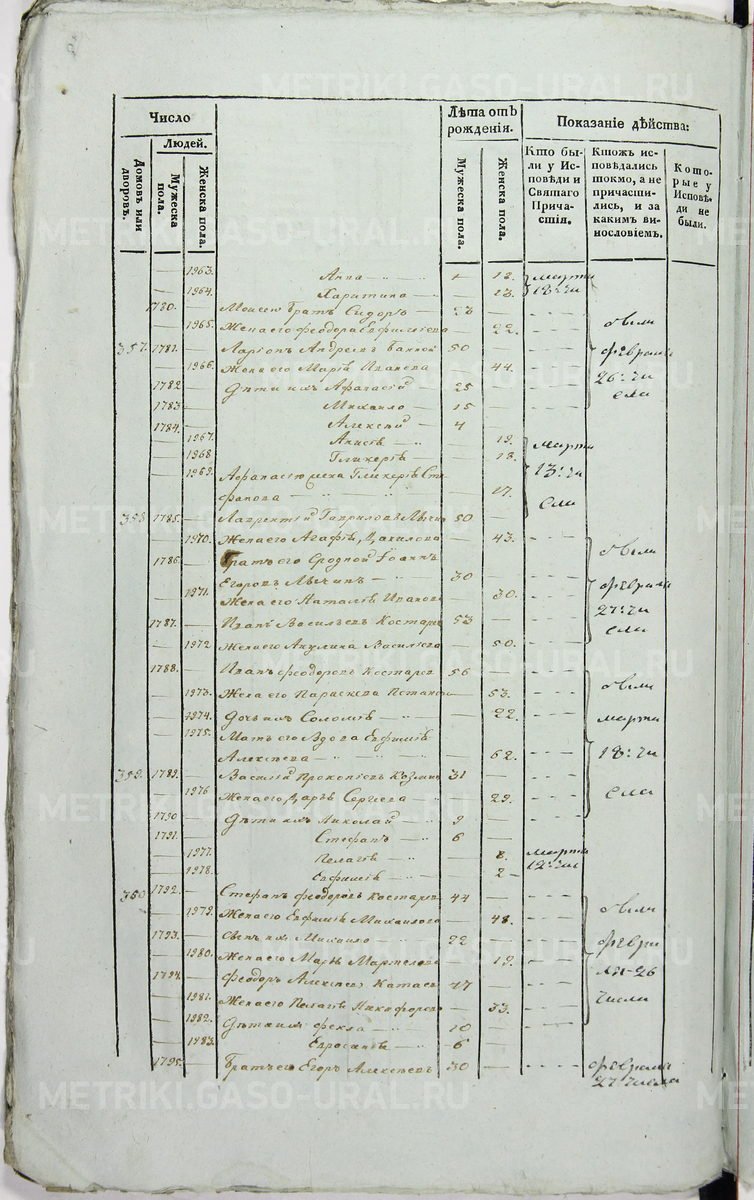 Число
Лѣта отъ рожденія.
Показаніе дѣйства:
Людей.
Домовъ или дворовъ.
Мужеска пола.
Женска пола.
Мужеска пола.
Женска пола.
Кто бы-
ли у Ис-
повѣди и
Святаго
Прича-
стія.
Ктожъ ис-
повѣдались
токмо, а не
причасти-
лись, и за
какимъ ви-
нословіемъ.
Кото-
рые у
Исповѣ-
ди не
были.
— 1963. Анна — 12. марта
— 1964. Харитина — 13. 18: чи
1780. — Моисею братъ Сидоръ — —
— 1965. Жена его Феодора — 22. обыли
357. 1781. — Ларіонъ Андреевъ 50 — февраля
— 1966. Жена его Марія Иванова — 44. 26: чи
1782. — Дѣти ихъ Афанасій 25 — сла
1783 — Михайло 15 —
1784. — Алексѣй 4 —
— 1967. — 19. марта
— 1968 Гликерія — 18. 13: чи
— 1969. Афанасію жена Гликерія Сте
фанова — 17. сла
358 1785. — Лаврентій Гавриловъ 50 —
— 1970. Жена его Агафія Данилова — 43. обыли
1786. — Братъ его Сродной Іоаннъ февраля
Егоровъ 30 — 27: чи
— 1971. Жена его Наталія Иванова — 30. сла
1787. — Иванъ Васильевъ Костаре 53 —
— 1972 Жена его Акулина Василіева — 50.
1788. — Иванъ Феодоровъ Костарев 56 — обыли
— 1973. Жена его Параскева — 53. марта
— 1974. Дочь ихъ Соломія — 22. 18: чи
— 1975. Мать его Вдова Евфимія
Алексѣева — 62. сла
359. 1789. — Василій Прокопіевъ Козмин 31 —
— 1976 Жена его Дарія Сергіева — 29.
1790 — Дѣти ихъ Николай 9 —
1791. — Стефанъ 6 —
— 1977. Пелагія — 8. марта
— 1978. Евфимія — 2 12: чи
350 1792. — Стефанъ Феодоровъ Костарев 44 — обыли
— 1979. Жена его Евфимія Михайлова — 48. февра
1793. — Сынъ их Михайло 22 — ля 26
— 1980. Жена его Марія — 19. числа
1794. — Феодоръ Алексѣевъ Катаев 47 —
— 1981. Жена его Пелагія Никифорова — 33.
— 1982. Дѣти ихъ Фекла 10 —
— 1983. 6 —
1795. — Братъ его Егоръ Алексѣевъ 30 — февраля
27 числа
METRIKI.GASO-URAL.RU